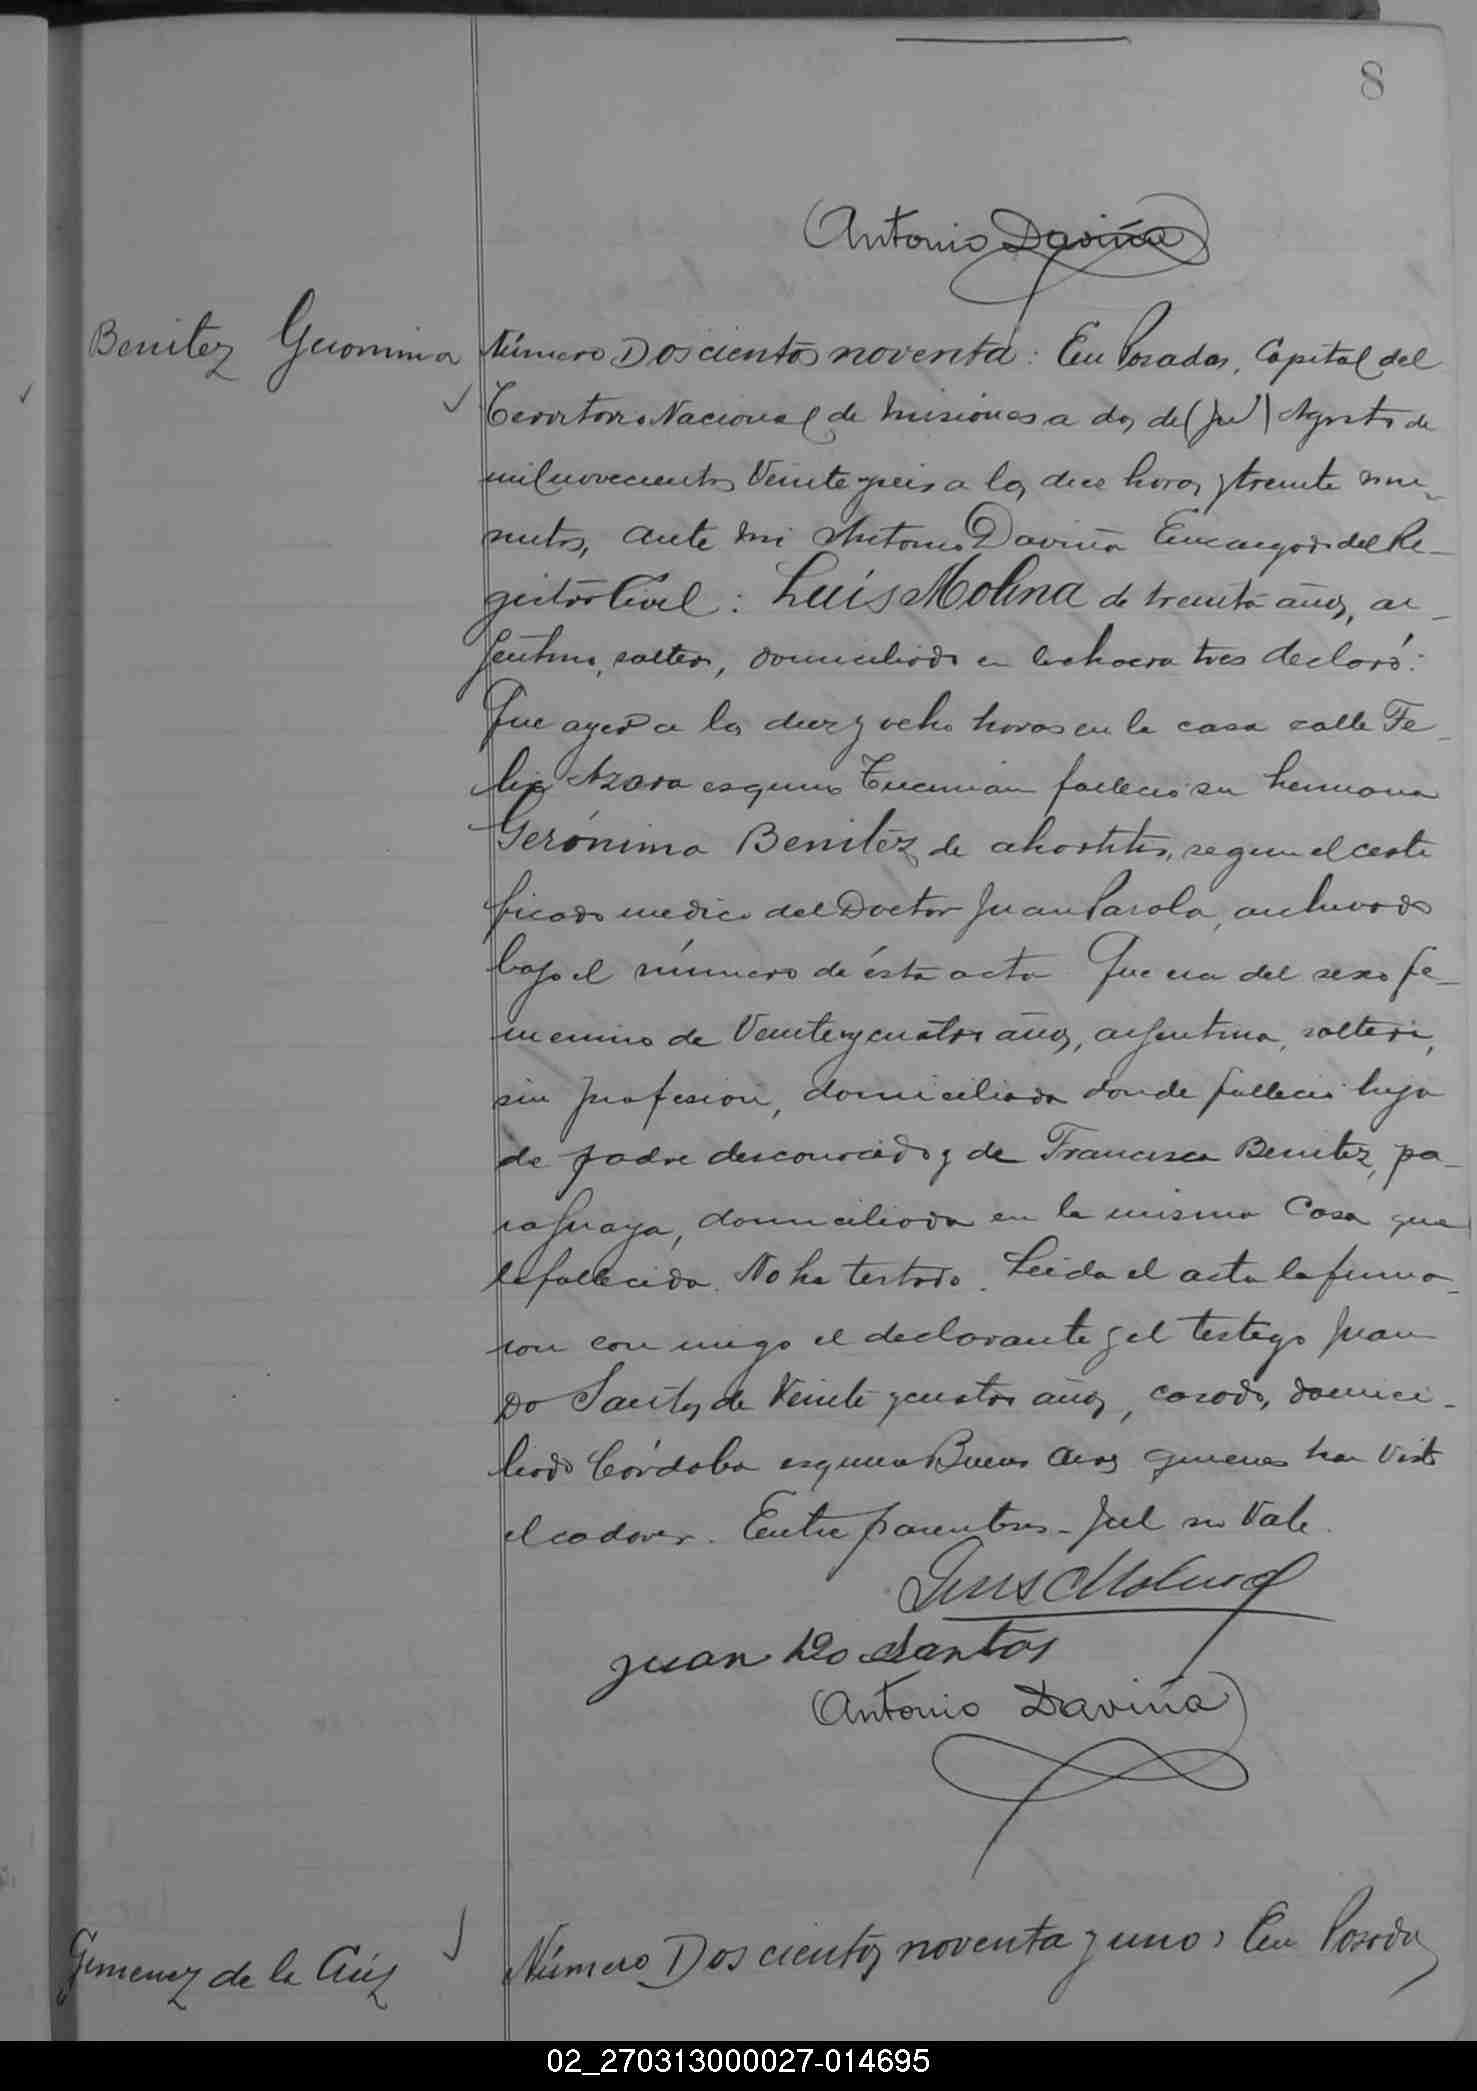 8
Antonio Daviña
Benitez Geronima
Número Doscientos noventa: En Posadas, Capital del
Territorio Nacional de Misiones a dos de (Jul) Agosto de
mil novecientos Veinte y seis a las diez horas y treinta mi-
nutos, ante mi Antonio Daviña Encargado del Re-
gistro Civil: Luis Molina de treinta años, ar-
gentino, soltero, domiciliado en la chacra tres declaró:
Que ayer a las diez y ocho horas en la casa calle Fe-
lix Azara esquina Tucumán falleció su hermana
Gerónima Benitez de , segun el certi
ficado medico del Doctor Juan Parola, archivado
bajo el número de ésta acta Que era del sexo fe-
menino de Veinte y cuatro años, argentina, soltera,
sin profesion, domiciliada donde falleció hija
de padre desconocido y de Francisca Benitez, pa-
raguaya, domiciliada en la misma Casa que
la fallecida. No ha testado. Leida el acta la firma-
ron con migo el declarante y el testigo Juan
Do Santos de Veinte y cuatro años, casado, domici-
liado Córdoba esquina Buenos Aires quienes han visto
el cadaver. Entre parentesis - Jul no Vale.
Luis Molina
Juan Do Santos
Antonio Daviña
Gimenez de la Cruz
Número Doscientos noventa y uno: En Posadas
02_270313000027-014695